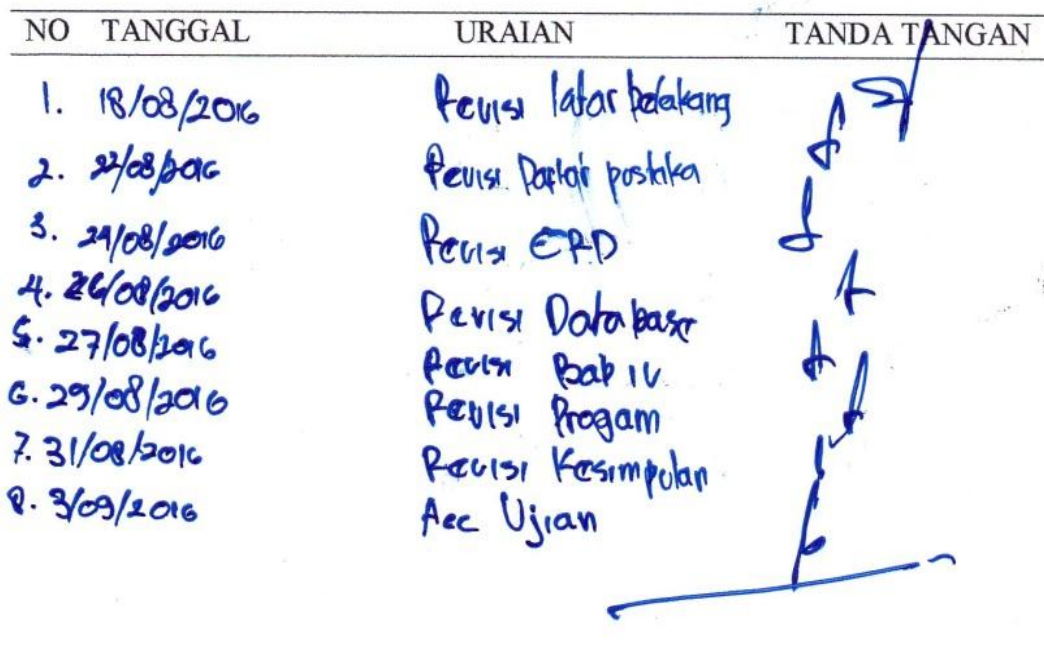 NO TANGGAL URAIAN TANDA TANGAN
1. 18/08/2016 Revisi latar belakang
2. 22/08/2016 Revisi Daftar pustaka
3. 24/08/2016 Revisi ERD
4. 26/08/2016 Revisi Database
5. 27/08/2016 Revisi Bab IV
6. 29/08/2016 Revisi Progam
7. 31/08/2016 Revisi Kesimpulan
8. 3/09/2016 Acc Ujian